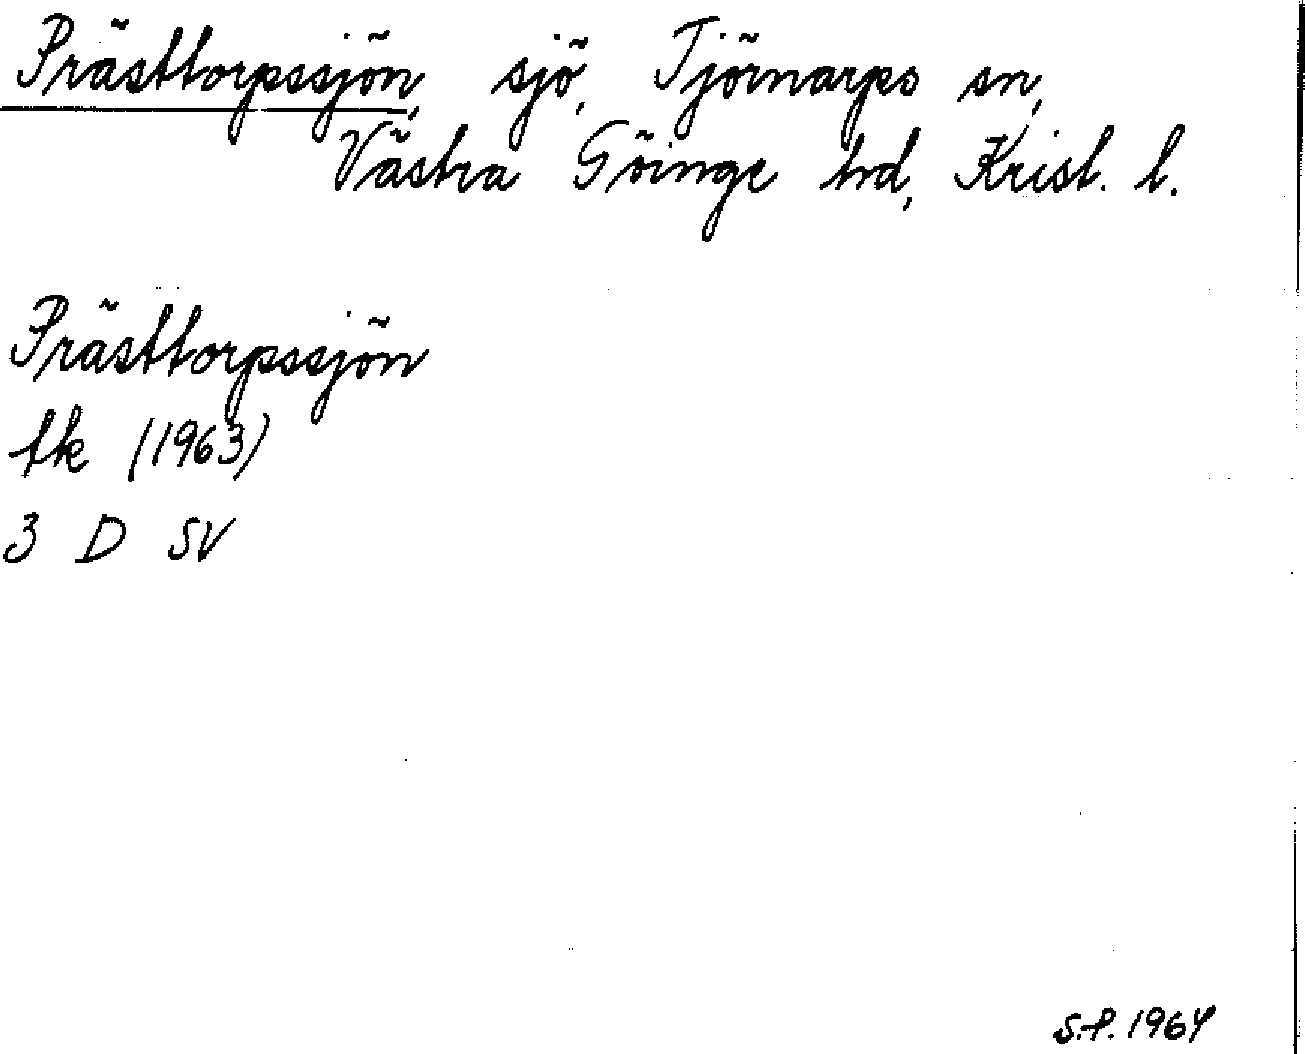 Prästtorpssjön, sjö, Tjörnarps sn,
Västra Göinge hd, Krist. l.
Prästtorpssjön
tk (1963)
3 D SV
S.P. 1964